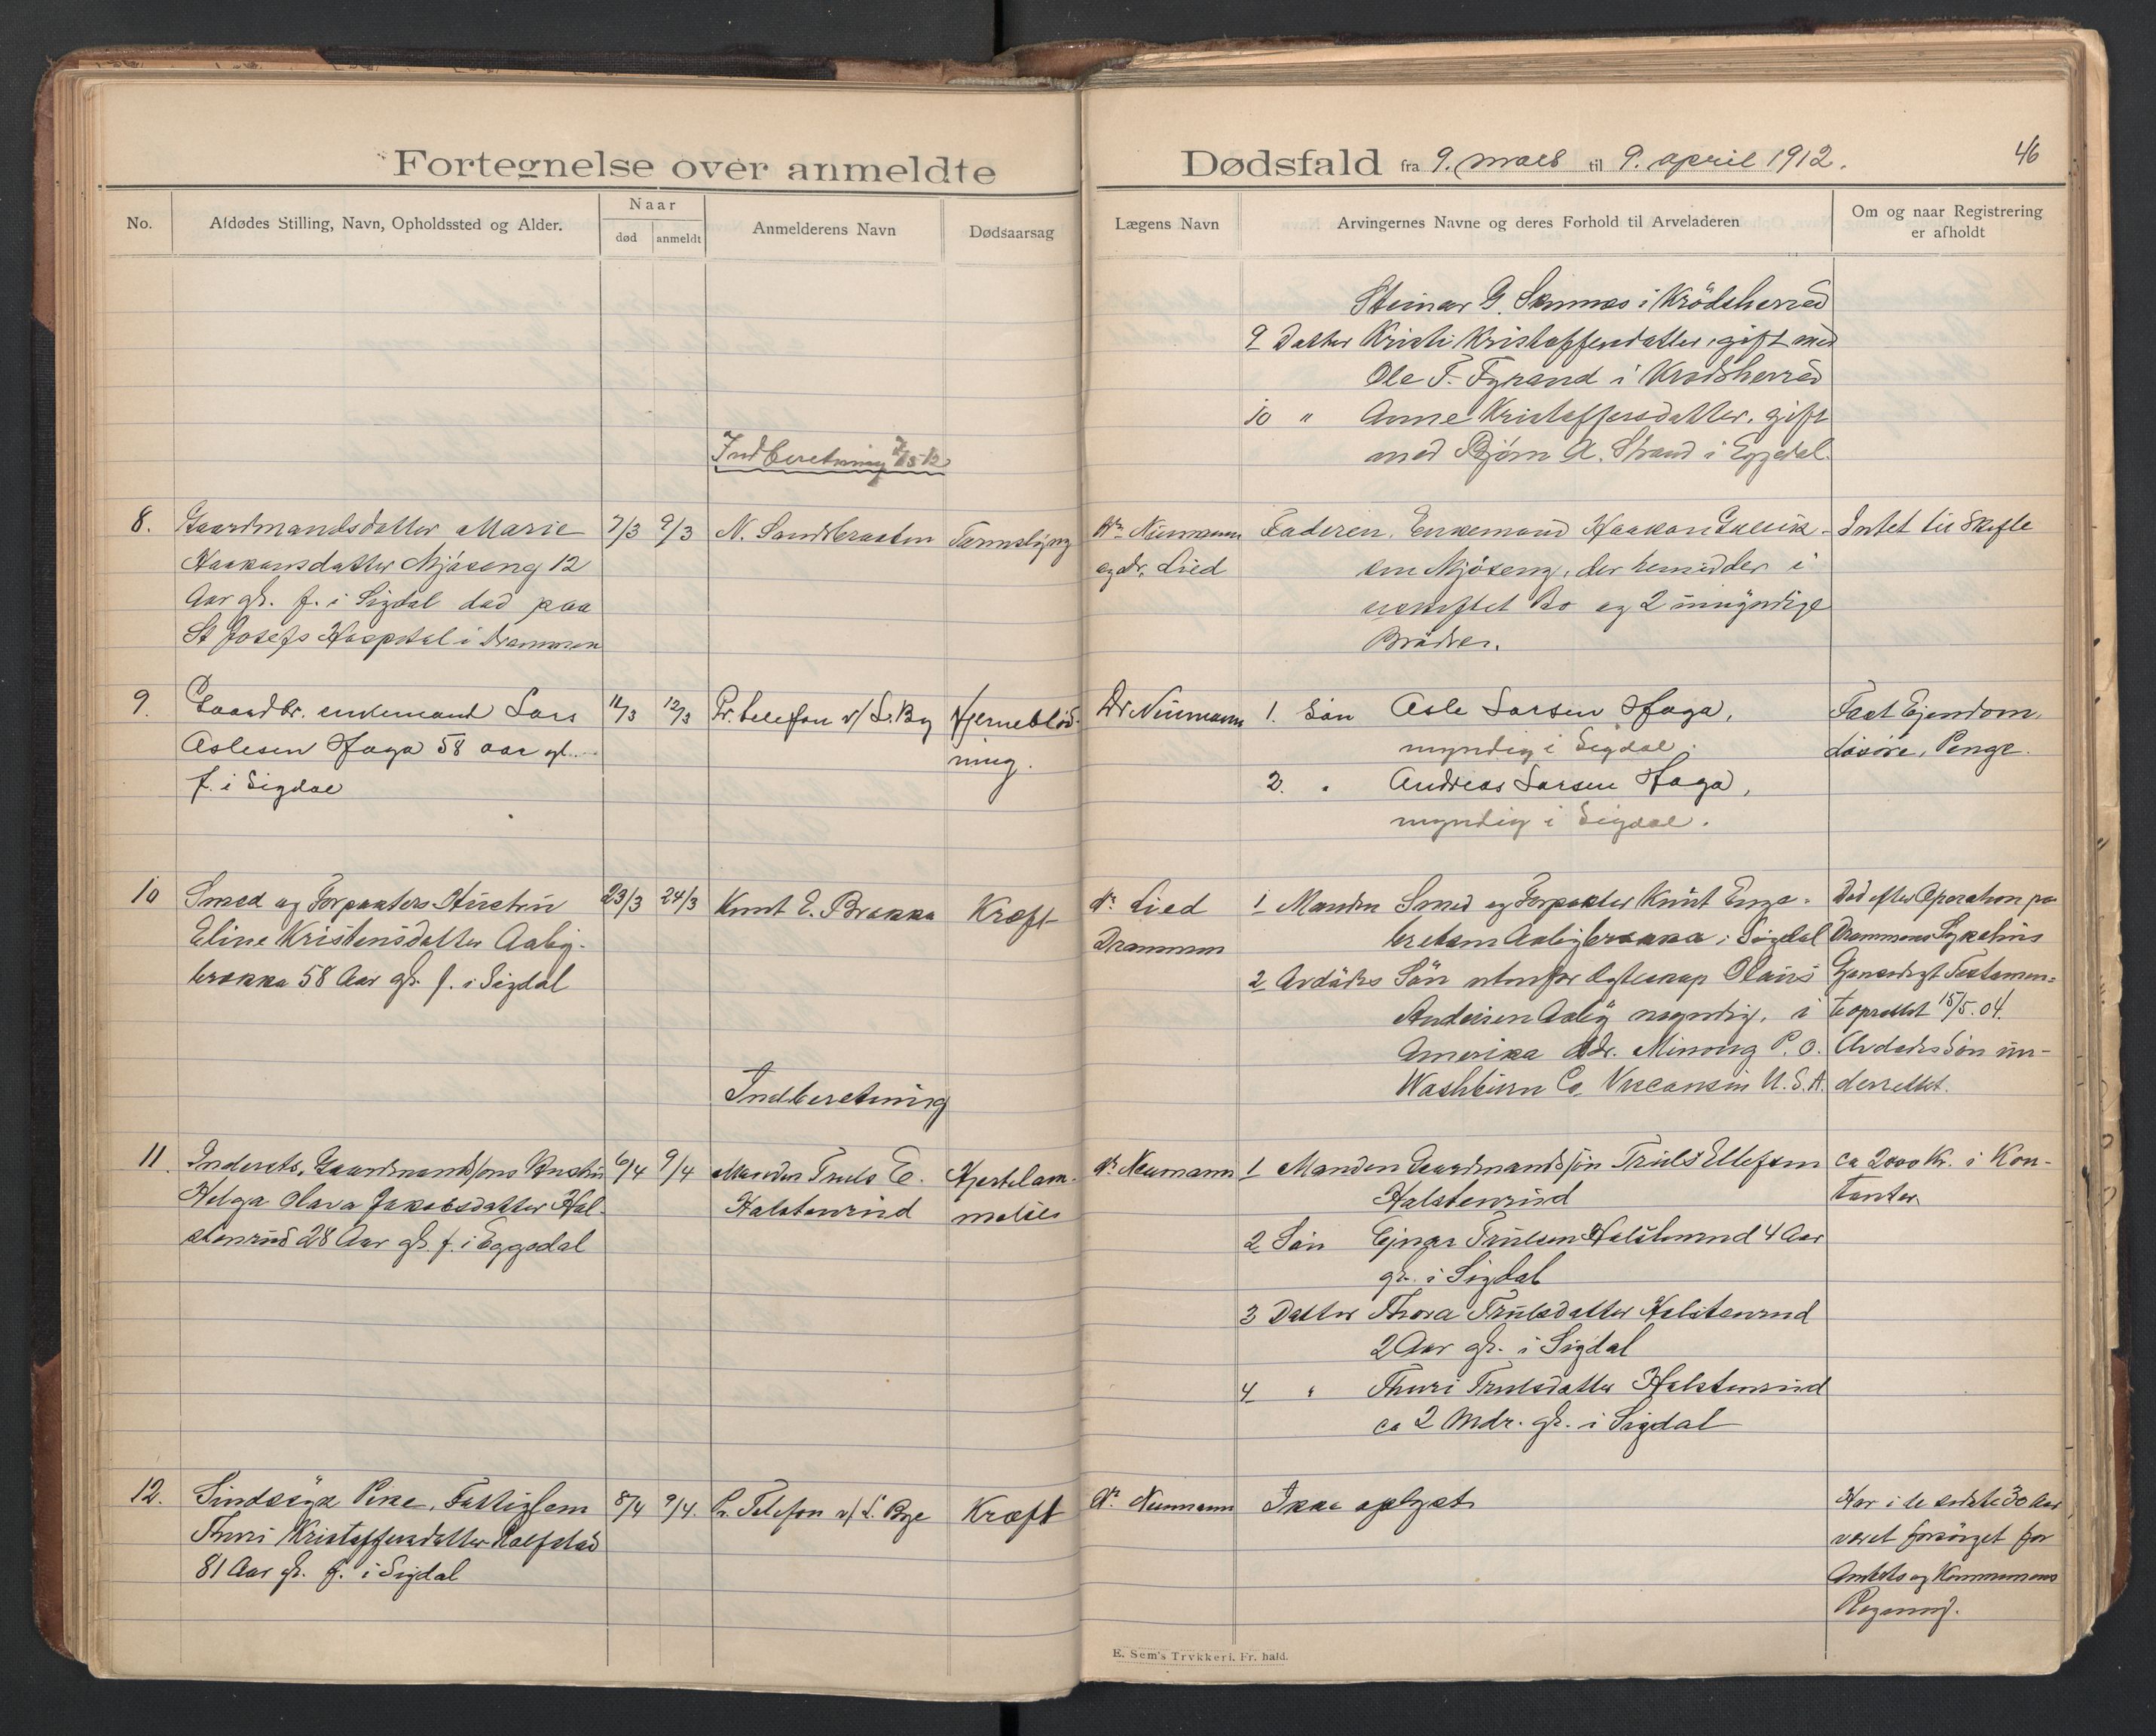 Fortegnelse over anmeldte
Dødsfald fra 9. mars til 9. april 1912.
46
No.
Afdødes Stilling, Navn, Opholdssted og Alder.
Naar
død
anmeldt
Anmelderens Navn
Dødsaarsag
Lægens Navn
Arvingernes Navne og deres Forhold til Arveladeren
Om og naar Registrering
er afholdt
Steinar G. i Krödsherred
9 Datter Kristi Kristoffersdatter, gift med
Ole T. Fyrand i Krødsherred
10 " Anne Kristoffersdatter, gift
med Bjørn A. Strand i Eggedal.
Indberetning
8.
Gaardmandsdatter Marie
Haakonsdatter Mjøseng 12
Aar gl. f. i Sigdal død paa
St Josefs Hospital i Drammen
7/3
9/3
N. Sandbraaten
Dr. Neumann
og Dr. Lied
Faderen, Enkemand Haakon Gullik-
sen Mjöseng, der hensidder i
uskiftet Bo og 2 umyndige
Brödre.
Intet til Skifte
9.
Gaardbr. enkemand Lars
Aslesen Haga 58 aar gl.
f. i Sigdal
11/3
12/3
Pr. telefon v/ L. By
Hjerneblöd-
ning.
Dr Neumann
1. Sön Asle Larsen Haga,
myndig i Sigdal.
2. " Andreas Larsen Haga,
myndig i Sigdal.
Fast Ejendom,
Lösöre, Penge.
10
Smed og Forpakters Hustru
Eline Kristensdatter Aaby-
brakka 58 Aar gl. f. i Sigdal
23/3
24/3
Knut E. Brakka
Kræft
Dr. Lied
Drammen
1 Manden Smed og Forpakter Knut Enge-
bretsen Aabybrakka i Sigdal
2 Avdödes Sön utenfor Egteskap Olaus
Andersen Aaby myndig, i
Amerika Adr. Minong P. O.
Washburn Co, Viscansin U. S. A.
Död efter Operation paa
Drammens Sykehus
Gjensidigt Testamen-
te oprettet 15/5. 04.
Avdödes Sön un-
derrettet.
Indberetning
11.
Inderts, Gaardmandssöns Hustru
Helga Olava Jakobsdatter Hal-
stenrud 28 Aar gl. f. i Eggedal
6/4
9/4
Manden Truls E.
Halstenrud
Hjertelam-
melse
Dr. Neumann
1 Manden Gaardmandssön Truls Ellefsen
Halstenrud
2 Sön Ejnar Trulsen Halstenrud 4 Aar
gl. i Sigdal
3 Datter Thora Trulsdatter Halstenrud
2 Aar gl. i Sigdal
4 " Thuri Trulsdatter Halstenrud
ca 2 Mdr. gl. i Sigdal
ca 2000 Kr. i Kon-
tanter.
12.
Sindssyk Pike, Fattiglem
Thuri Kristoffersdatter Kolfstad
81 Aar gl. f. i Sigdal
8/4
9/4.
Pr. Telefon v/ L. Bye
Kræft
Dr. Neumann
Ikke oplyst
Har i de sidste 30 Aar
været forsörget for
Amtets og Kommunens
Regning.
E. Sem's Trykkeri, Fr. hald.